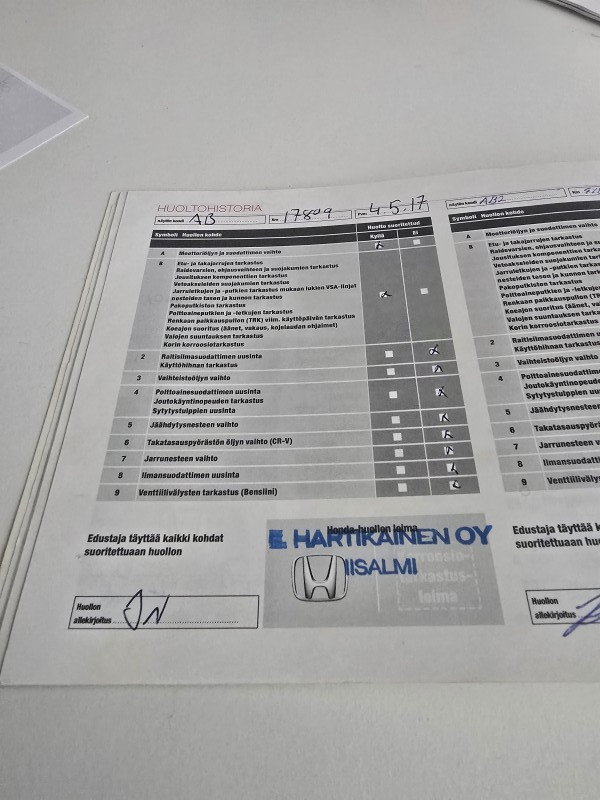 HUOLTOHISTORIA
näytön koodi AB Km 17809 Pvm 4.5.17
Symboli Huollon kohde Huolto suoritettud
Kyllä Ei
A Moottoriöljyn ja suodattimen vaihto
B Etu- ja takajarrujen tarkastus
Raidevarsien, ohjausvaihteen ja suojakumien tarkastus
Jousituksen komponenttien tarkastus
Vetoakseleiden suojakumien tarkastus
Jarruletkujen ja -putkien tarkastus mukaan lukien VSA-linjat
nesteiden tason ja kunnon tarkastus
Pakoputkiston tarkastus
Polttoaineputkien ja -letkujen tarkastus
Renkaan paikkauspullon (TRK) viim. käyttöpäivän tarkastus
Koeajon suoritus (äänet, vakaus, kojelaudan ohjaimet)
Valojen suuntauksen tarkastus
Korin korroosiotarkastus
2 Raitisilmasuodattimen uusinta
Käyttöhihnan tarkastus
3 Vaihteistoöljyn vaihto
4 Polttoainesuodattimen uusinta
Joutokäyntinopeuden tarkastus
Sytytystulppien uusinta
5 Jäähdytysnesteen vaihto
6 Takatasauspyörästön öljyn vaihto (CR-V)
7 Jarrunesteen vaihto
8 Ilmansuodattimen uusinta
9 Venttiilivälysten tarkastus (Bensiini)
Edustaja täyttää kaikki kohdat
suoritettuaan huollon
Honda-huollon leima
E. HARTIKAINEN OY
IISALMI
Korroosio-
tarkastus-
leima
Huollon
allekirjoitus
näytön koodi AB2 Km
Symboli Huollon kohde
A Moottoriöljyn ja suodattimen
B Etu- ja takajarrujen tarkastus
Raidevarsien, ohjausvaihteen ja
Jousituksen komponenttien tark
Vetoakseleiden suojakumien tark
Jarruletkujen ja -putkien tarkastu
nesteiden tason ja kunnon tarkas
Pakoputkiston tarkastus
Polttoaineputkien ja -letkujen
Renkaan paikkauspullon (TRK)
Koeajon suoritus (äänet, va
Valojen suuntauksen tarkas
Korin korroosiotarkastus
2 Raitisilmasuodattimen u
Käyttöhihnan tarkastus
3 Vaihteistoöljyn vaihto
4 Polttoainesuodattim
Joutokäyntinopeude
Sytytystulppien uus
5 Jäähdytysnesteen
6 Takatasauspyörä
7 Jarrunesteen va
8 Ilmansuodattim
9 Venttiilivälyste
Edustaja täyttää k
suoritettuaan huo
Huollon
allekirjoitus